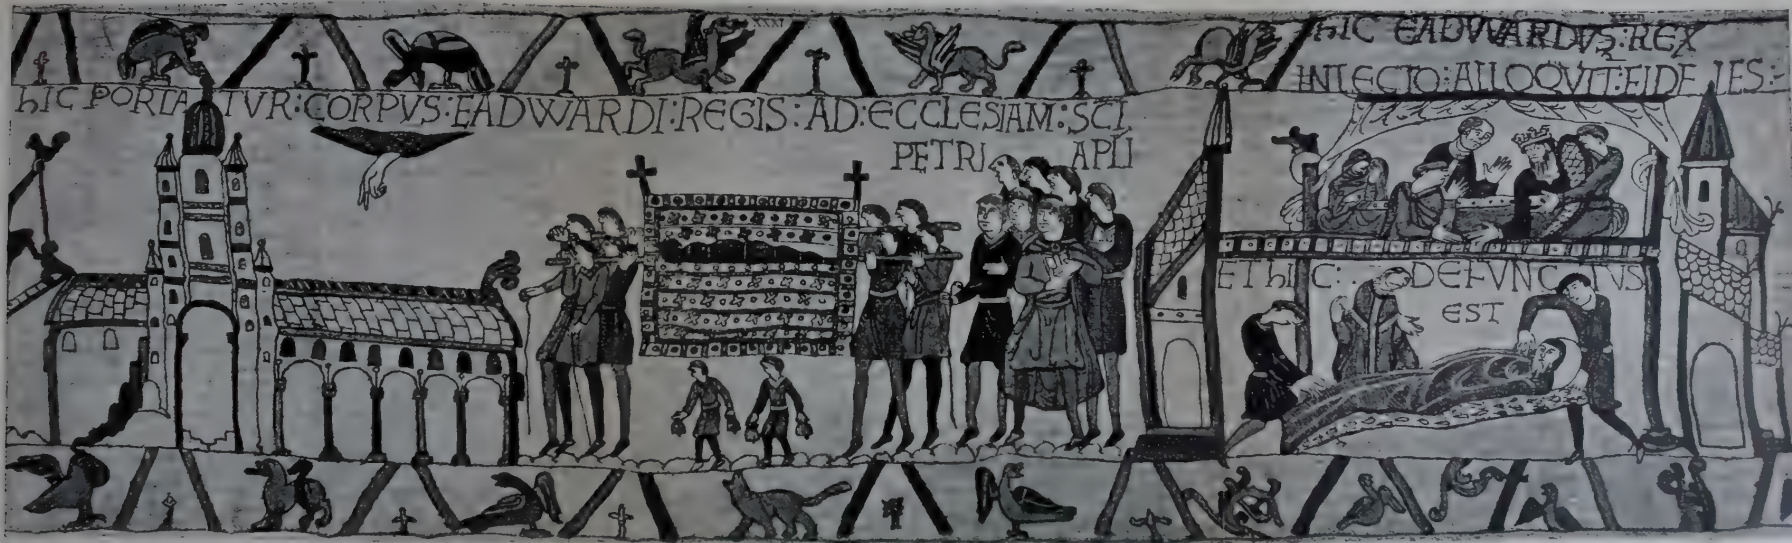 hIC PORTATVR:CORPVS:EADWARDI:REGIS:AD:ECCLESIAM:SCI
PETRI APLI
hIC EADVVARDVS:REX
INLECTO:ALLOQVIT:FIDELES:
ET hIC: DEFVNCTVS
EST